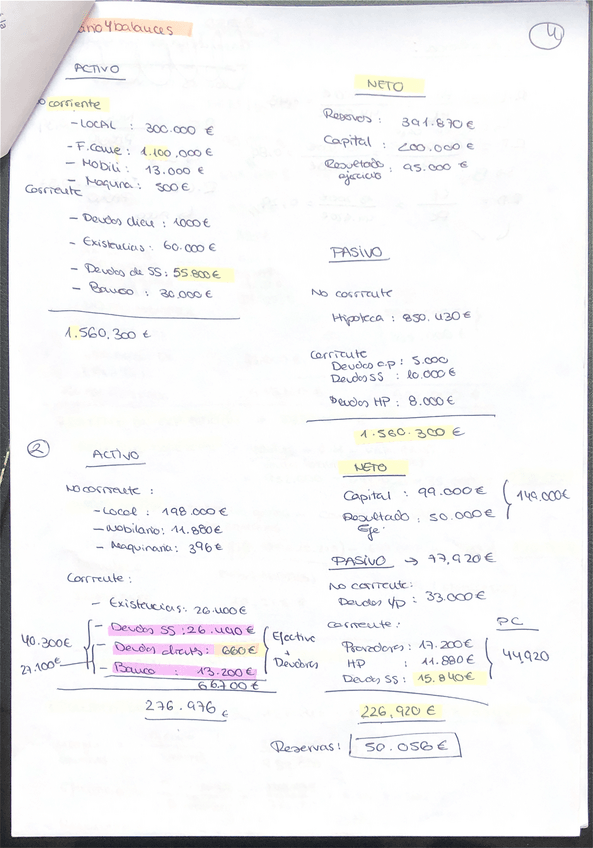 ano 4 balances
4
ACTIVO
o corriente
- LOCAL : 300.000 €
- F.come : 1.100.000 €
- Mobili : 13.000 €
- Maquina : 500 €
Corriente
- Deudos clien : 1000 €
- Existencias : 60.000 €
- Deudos de SS : 55.800 €
- Banco : 30.000 €
1.560,300 €
NETO
Reservas : 391.870 €
Capital : 200.000 €
Resultado ejercicio : 95.000 €
PASIVO
No corriente
Hipoteca : 850.430 €
Corriente
Deudas c.p : 5.000
Deudas SS : 10.000 €
Deudas HP : 8.000 €
1.560.300 €
2
ACTIVO
No corriente :
- Local : 198.000 €
- Mobilario : 11.880 €
- Maquinaria : 396 €
Corriente :
- Existencias : 26.400 €
- Deudos SS : 26.440 €
- Deudos clients : 660 €
- Banco : 13.200 €
40.300 €
27.100 €
Efective + Deudores
66.700 €
276.976 €
NETO
Capital : 99.000 €
Resultado Eje : 50.000 €
149.000 €
PASIVO → 77,920 €
No corriente :
Deudas l/p : 33.000 €
Corriente :
PC
Provedores : 17.200 €
HP : 11.880 €
Deudas SS : 15.840 €
44,920
226,920 €
Reservas : 50.056 €